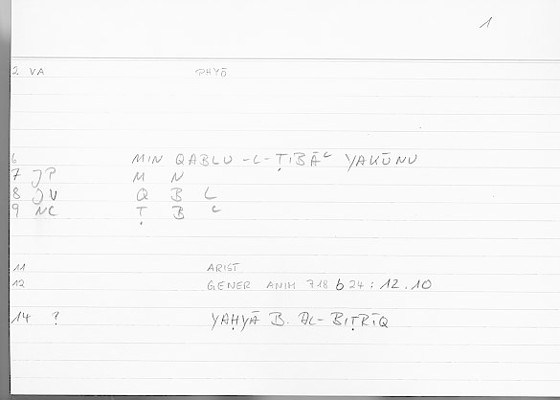 1
2 VA PHYŌ
6 MIN QABLU -L-ṬIBĀʿ YAKŪNU
7 JP M N
8 JV Q B L
9 NC Ṭ B ʿ
11 ARIST
12 GENER ANIM 718 b 24 : 12.10
14 ? YAḤYĀ B. AL-BIṬRĪQ